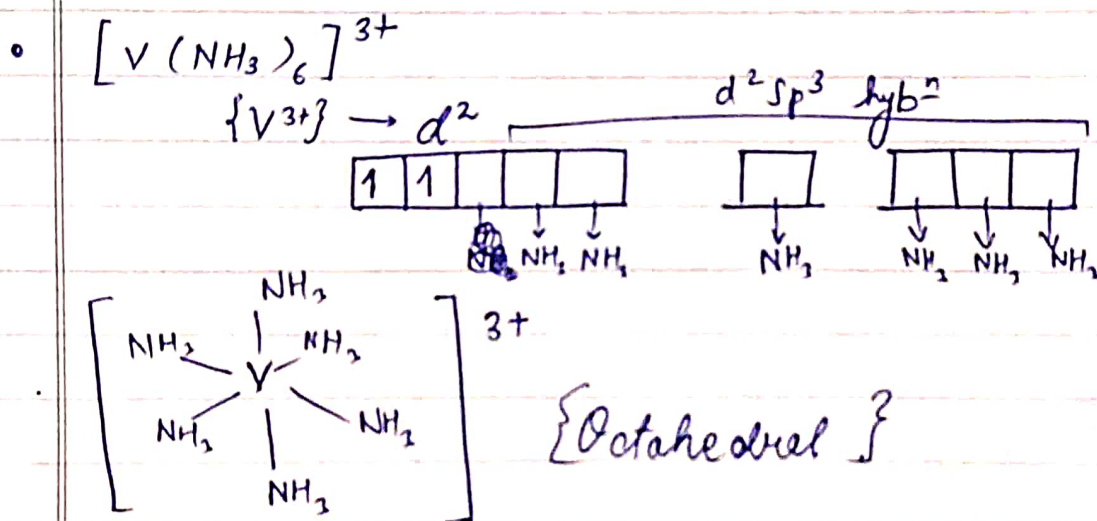 [V(NH₃)₆]³⁺
{V³⁺} → d² d²sp³ hybⁿ
1 1
NH₃ NH₃ NH₃ NH₃ NH₃ NH₃
NH₃
NH₃ NH₃ 3+
V
NH₃ NH₃ {Octahedral}
NH₃